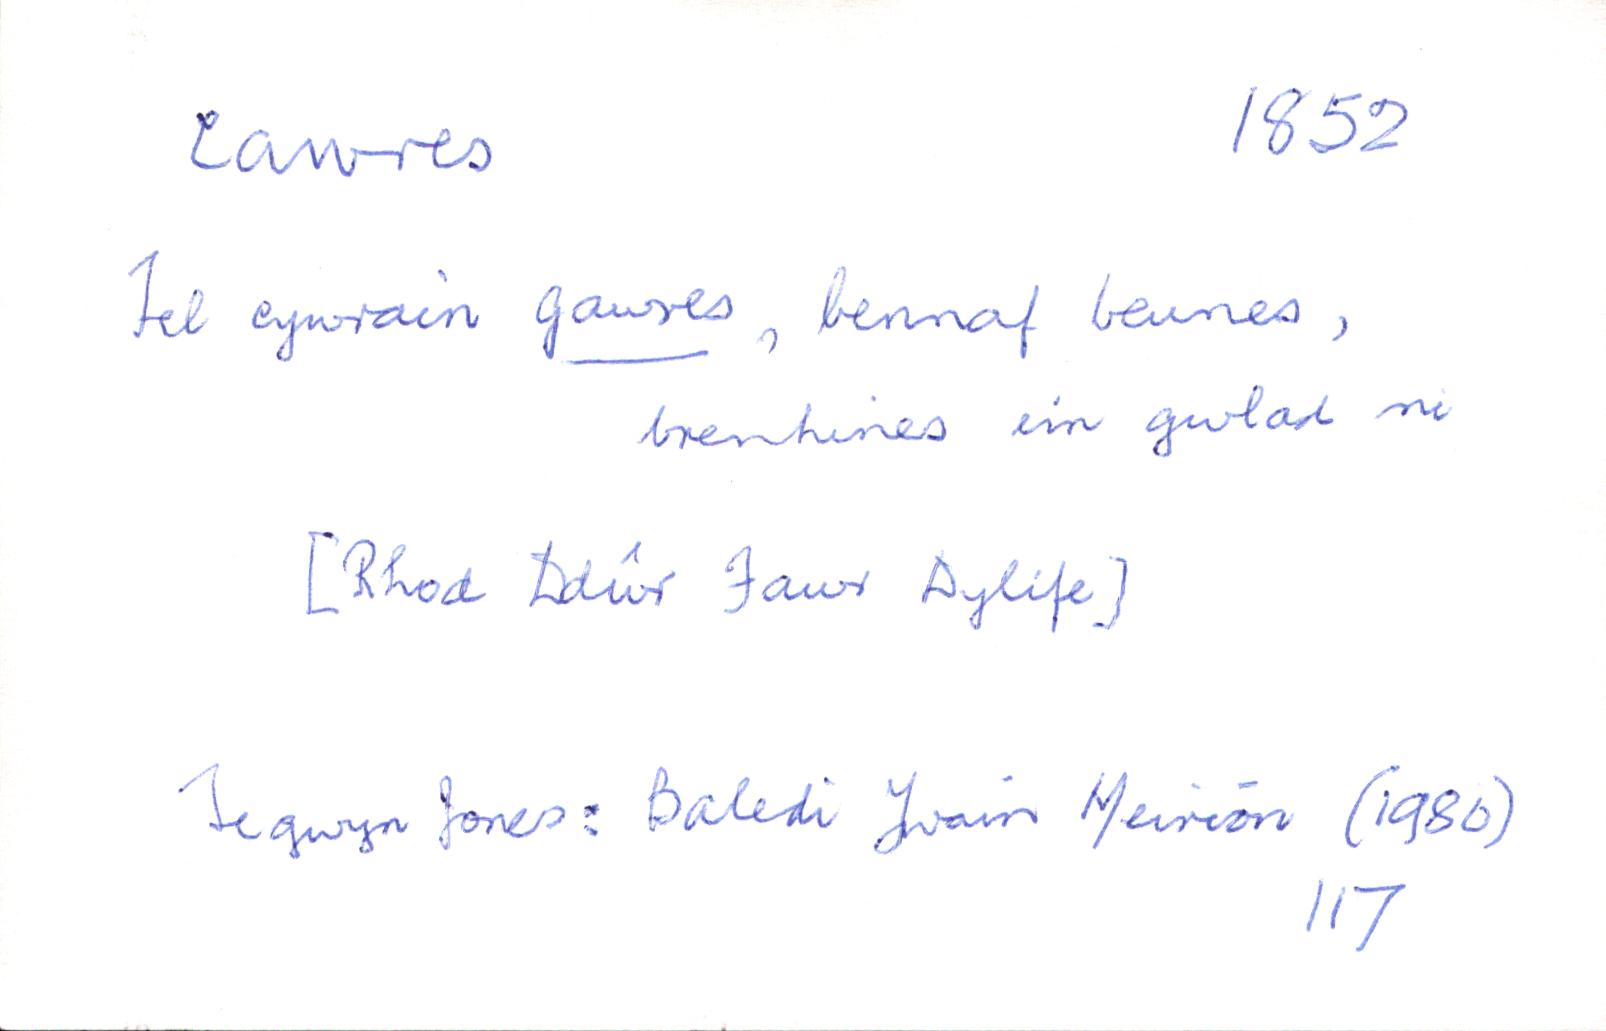 Cawres 1852
Fel cywrain gawres, bennaf beunes,
brenhines ein gwlad ni
[Rhod Ddŵr Fawr Dylife]
Tegwyn Jones: Baledi Ywain Meirion (1980)
117